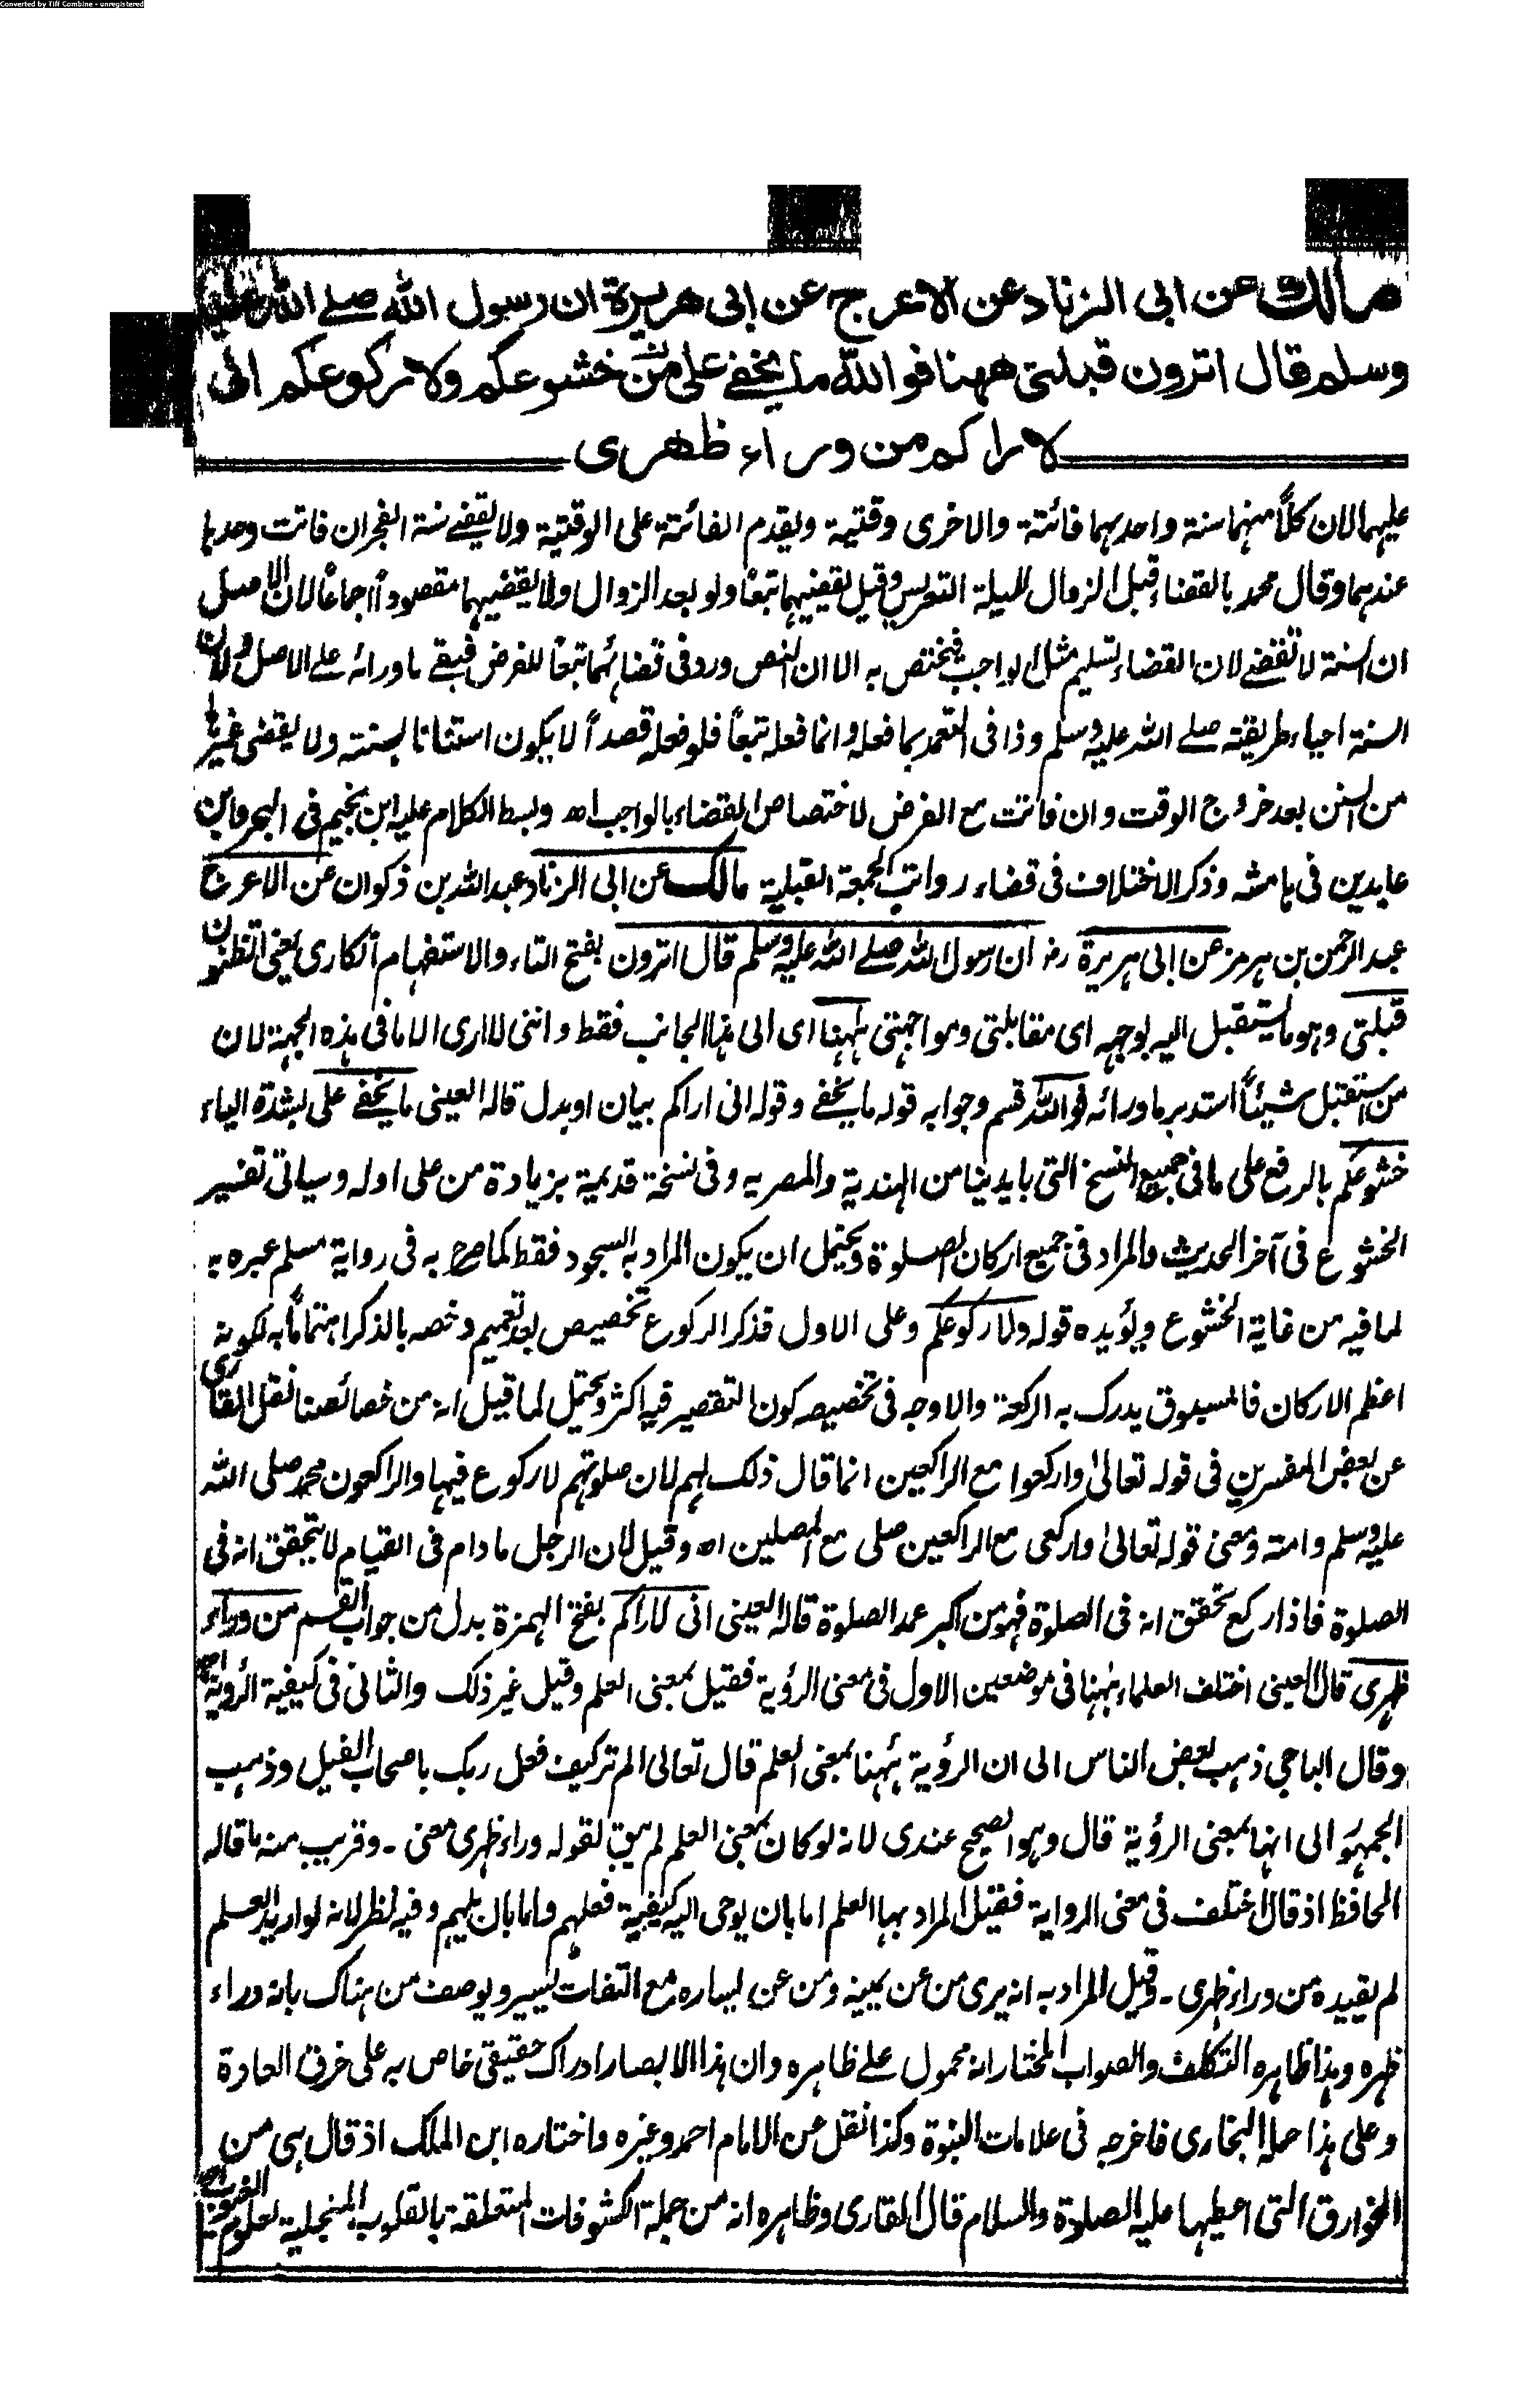 Converted by Tiff Combine - unregistered
مالك عن ابى الزناد عن الاعرج عن ابى هريرة ان رسول الله صلے الله عليه
وسلم قال اترون قبلتى ههنا فوالله ما يخفے على خشوعكم ولا ركوعكم انى
لاراكم من وراء ظهرى
عليهما لان كلاً منهما سنة واحدهما فائتة والاخرى وقتية ويقدم الفائتة على الوقتية ولا يقضے سنة الفجر ان فاتت وحدها
عندهما وقال محمد بالقضاء قبل الزوال لليلة التعريس وقيل يقضيهما تبعاً ولو بعد الزوال ولا يقضيهما مقصوداً اجماعاً لان الاصل
ان السنة لا تقضے لان القضاء تسليم مثل الواجب فيختص به الا ان النص ورد فى قضائهما تبعاً للفرض فبقے ما ورائه علے الاصل ولان
السنة احياء طريقته صلے الله عليه وسلم وذا فى التعمد بما فعله وانما فعله تبعاً فلو فعله قصداً لا يكون استنانا بسنته ولا يقضى غيرها
من السنن بعد خروج الوقت وان فاتت مع الفرض لاختصاص القضاء بالواجب اھ وبسط الكلام عليه ابن نجيم فى البحر وابن
عابدين فى هامشه وذكر الاختلاف فى قضاء رواتب الجمعة القبلية مالك عن ابى الزناد عبد الله بن ذكوان عن الاعرج
عبد الرحمن بن هرمز عن ابى هريرة رض ان رسول الله صلے الله عليه وسلم قال اترون بفتح التاء والاستفهام انكارى يعنى اتظنون
قبلتى وهو ما يستقبل اليه بوجهه اى مقابلتى ومواجهتى ههنا اى الى هذا الجانب فقط واننى لا ارى الا ما فى هذه الجهة لان
من استقبل شيئاً استدبر ما ورائه فوالله قسم وجوابه قوله ما يخفے وقوله انى اراكم بيان او بدل قاله العينى ما يخفے على بشدة الياء
خشوعكم بالرفع على ما فى جميع النسخ التى بايدينا من الهندية والمصريه وفى نسخة قديمة بزيادة من على اوله وسياتى تفسير
الخشوع فى آخر الحديث والمراد فى جميع اركان الصلوة ويحتمل ان يكون المراد به السجود فقط كما صرح به فى رواية مسلم عبره به
لما فيه من غاية الخشوع ويؤيده قوله ولا ركوعكم وعلى الاول فذكر الركوع تخصيص بعد تعميم وخصه بالذكر اهتماماً به لكونه
اعظم الاركان فالمسبوق يدرك به الركعة والاوجه فى تخصيصه كون التقصير فيه اكثر ويحتمل لما قيل انه من خصائصنا نقل القارى
عن بعض المفسرين فى قوله تعالىٰ واركعوا مع الراكعين انما قال ذلك لهم لان صلوتهم لا ركوع فيها والراكعون محمد صلى الله
عليه وسلم وامته ومعنى قوله تعالىٰ واركعى مع الراكعين صلى مع المصلين اھ وقيل لان الرجل ما دام فى القيام لا يتحقق انه فى
الصلوة فاذا ركع تحقق انه فى الصلوة فهو من اكبر عمد الصلوة قاله العينى انى لاراكم بفتح الهمزة بدل من جواب القسم من وراء
ظهرى قال العينى اختلف العلماء ههنا فى موضعين الاول فى معنى الرؤية فقيل بمعنى العلم وقيل غير ذلك والثانى فى كيفية الرؤية اھ
وقال الباجى ذهب بعض الناس الى ان الرؤية ههنا بمعنى العلم قال تعالى الم تر كيف فعل ربك باصحاب الفيل وذهب
الجمهور الى انها بمعنى الرؤية قال وهو الصحيح عندى لانه لو كان بمعنى العلم لم يبق لقوله وراء ظهرى معنى ۔ وقريب منه ما قاله
الحافظ اذ قال اختلف فى معنى الرواية فقيل المراد بها العلم اما بان يوحى اليه كيفية فعلهم واما بان يلهم وفيه نظر لانه لو اريد العلم
لم يقيده من وراء ظهرى ۔ وقيل المراد به انه يرى من عن يمينه ومن عن يساره مع التفات يسير ويوصف من هناك بانه وراء
ظهره وهذا ظاهره التكلف والصواب المختار انه محمول علے ظاهره وان هذا الابصار ادراك حقيقى خاص به على خرق العادة
وعلى هذا حمله البخارى فاخرجه فى علامات النبوة وكذا نقل عن الامام احمد وغيره واختاره ابن الملك اذ قال هى من
الخوارق التى اعطيها عليه الصلوة والسلام قال القارى وظاهره انه من جملة الكشوفات المتعلقة بالقلوب المنجلية لعلوم الغيوب اھ